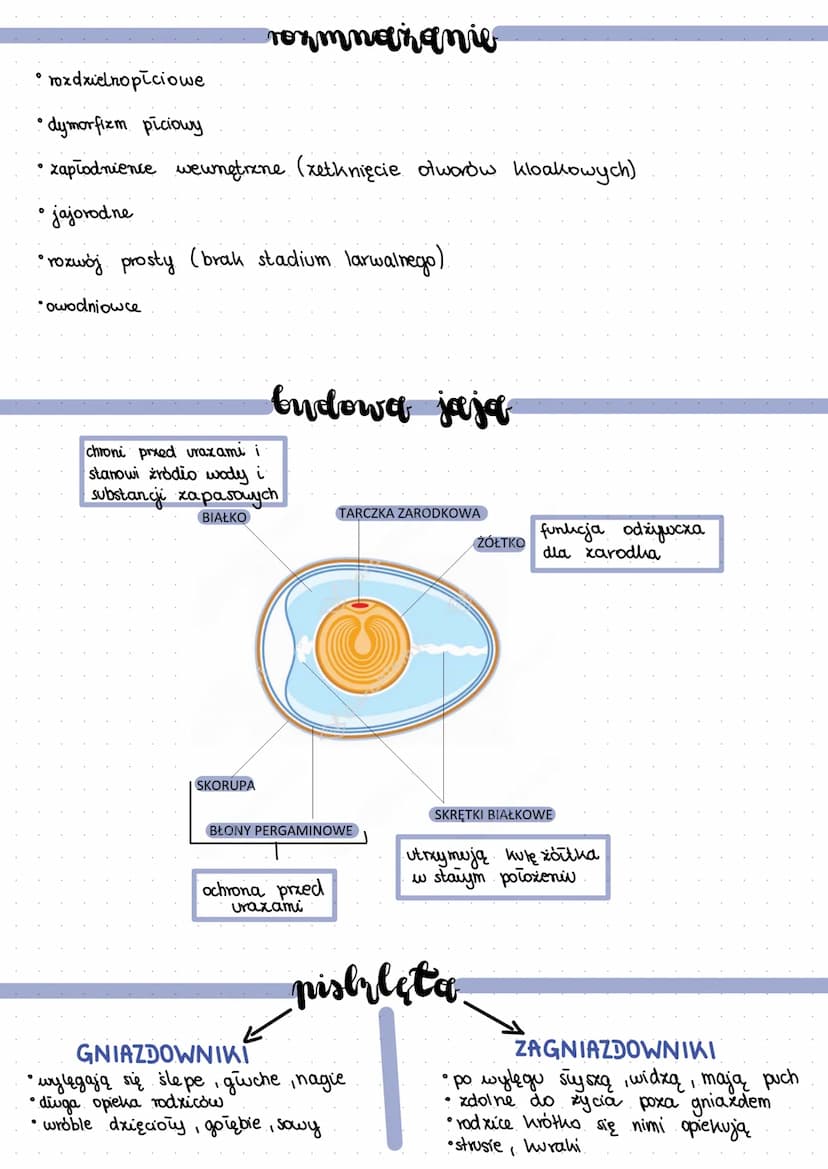 rozmnażanie
• rozdzielnopłciowe
• dymorfizm płciowy
• zapłodnienie wewnętrzne (zetknięcie otworów kloakowych)
• jajorodne
• rozwój prosty (brak stadium larwalnego)
• owodniowce
budowa jaja
chroni przed urazami i
stanowi źródło wody i
substancji zapasowych
BIAŁKO
TARCZKA ZARODKOWA
ŻÓŁTKO
funkcja odżywcza
dla zarodka
SKORUPA
BŁONY PERGAMINOWE
SKRĘTKI BIAŁKOWE
ochrona przed
urazami
utrzymują kulę żółtka
w stałym położeniu
pisklęta
GNIAZDOWNIKI
• wylęgają się ślepe, głuche, nagie
• długa opieka rodziców
• wróble dzięcioły, gołębie, sowy
ZAGNIAZDOWNIKI
• po wylęgu słyszą, widzą, mają puch
• zdolne do życia poza gniazdem
• rodzice krótko się nimi opiekują
• strusie, kuraki